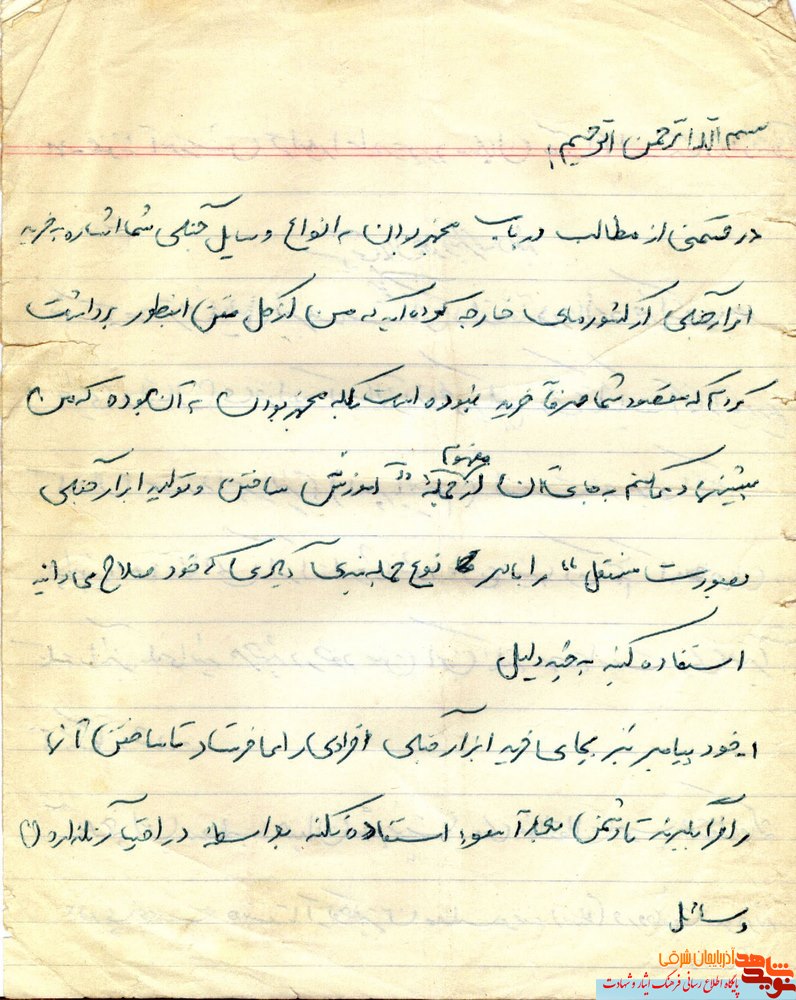 بسم الله الرحمن الرحیم؛
در قسمتی از مطالب در باب مجهز بودن به انواع وسایل جنگی شما اشاره به خرید
ابزار جنگی از کشورهای خارجه کرده‌اید که من از کل متن اینطور برداشت
کردم که مقصود شما صرفاً خرید نبوده است بلکه مجهز بودن به آن بوده که من
پیشنهاد میکنم به جای آن از مفهوم جمله «آموزش ساختن و تولید ابزار جنگی
بصورت مستقل» را با هر نوع جمله بندی دیگری که خود صلاح می‌دانید
استفاده کنید به چند دلیل
۱- خود پیامبر نیز بجای خرید ابزار جنگی افرادی را میفرستاد تا ساختن آنها
را فرا بگیرند تا دشمن استفاده نکند بواسطه در اختیار نگذاردن
وسائل
نوید شاهد آذربایجان شرقی
پایگاه اطلاع رسانی فرهنگ ایثار و شهادت